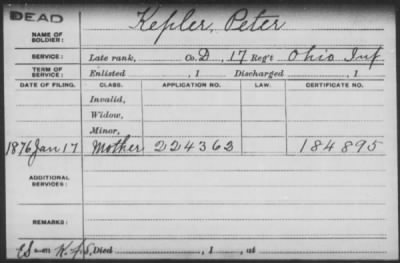 DEAD
NAME OF SOLDIER: Kepler, Peter
SERVICE: Late rank, Co. D, 17 Reg't Ohio Inf
TERM OF SERVICE: Enlisted , 1 Discharged , 1
DATE OF FILING. CLASS. APPLICATION NO. LAW. CERTIFICATE NO.
Invalid,
Widow,
Minor,
1876 Jan 17 Mother 224363 184895
ADDITIONAL SERVICES:
REMARKS:
Died , 1 , at